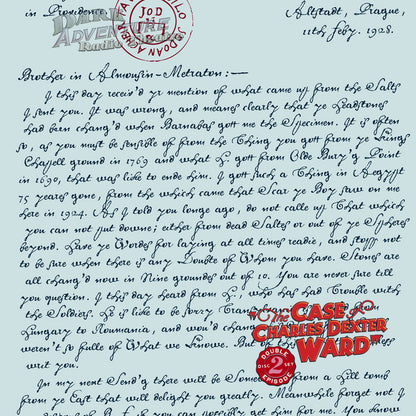 in Providence.
Altstadt, Prague,
11th Feby. 1928.
DARK
ADVENTURE
Radio
Brother in Almousin-Metraton:—
I this day receiv'd yr mention of what came up from the Salts
I sent you. It was wrong, and meanes clearly that ye Headstones
had been chang'd when Barnabas gott me the Specimen. It is often
so, as you must be sensible of from the Thing you gott from ye Kings
Chapell ground in 1769 and what H. gott from Olde Bury'g Point
in 1690, that was like to ende him. I gott such a Thing in Aegypt
75 yeares gone, from the which came that Scar ye Boy saw on me
here in 1924. As I told you longe ago, do not calle up That which
you can not put downe; either from dead Saltes or out of ye Spheres
beyond. Have ye Wordes for laying at all times readie, and stopp not
to be sure when there is any Doubte of Whom you have. Stones are
all chang'd now in Nine groundes out of 10. You are never sure till
you question. I this day heard from H., who has had Trouble with
the Soldiers. He is like to be sorry
Hungary to Roumania, and wou'd chang
weren't so fulle of What we Knowe. But of
writ you.
The CASE of
CHARLES DEXTER
WARD
DOUBLE
2
DISC SET
EPISODE
In my next Send'g there will be Some from a Hill tomb
from ye East that will delight you greatly. Meanwhile forget not I
B. F. if you can possibly get him for me. You know